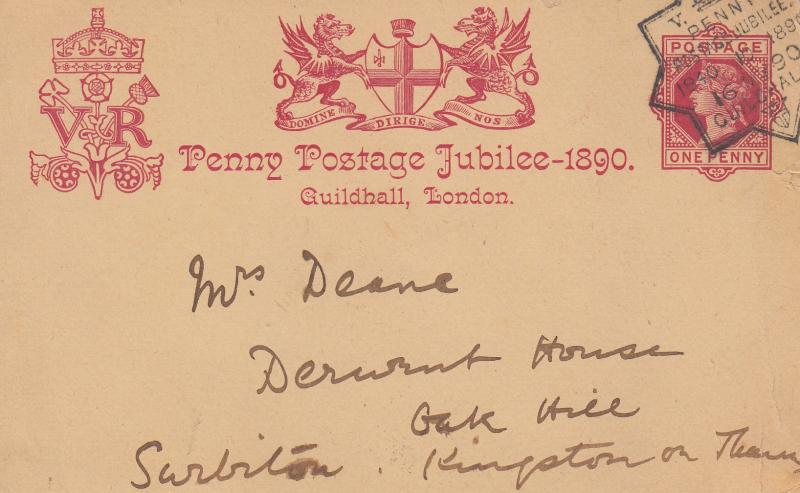 V R
DOMINE DIRIGE NOS
Penny Postage Jubilee-1890.
Guildhall, London.
POSTAGE
ONE PENNY
V.R.
PENNY
JUBILEE
1890
16
90
GUILDHALL
Mrs Deane
Derwent House
Oak Hill
Surbiton . Kingston on Thames